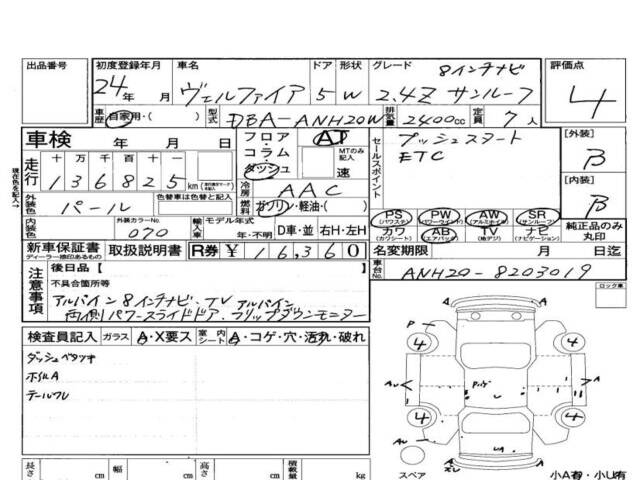 出品番号 初度登録年月 車名 ドア 形状 グレード 8インチナビ 評価点
24年 月 ヴェルファイア 5 W 2.4Z サンルーフ 4
車歴 自家用・( ) 型式 DBA-ANH20W 排気量 2400cc 定員 7人
車検 年 月 日
フロア AT
コラム MTのみ記入
ダッシュ 速
セールスポイント プッシュスタート
ETC
[外装] B
[内装] B
現在色を記入→
走行 十 万 千 百 十 一
136825 km
冷房 AAC
燃料 ガソリン・軽油・( )
外装色 パール 色替車は色替と記入
内装色 外装カラーNo. 070
輸入車 モデル年式 年・不明 D車・並 右H・左H
PS (パワステ) PW (パワーウィンド) AW (アルミホイル) SR (サンルーフ)
カワ (カワシート) AB (エアバッグ) TV (地デジ) ナビ (ナビゲーション)
純正品のみ丸印
新車保証書 ディーラー捺印あるもの 取扱説明書 R券 ¥ 16,360
名変期限 月 日迄
車台No. ANH20-8203019
注意事項 後日品[ ]
不具合箇所等
アルパイン8インチナビ・TV アルパイン
両側パワースライドドア、フリップダウンモニター
ロック車
検査員記入 ガラス A・X要ス 室内シート A・コゲ・穴・汚れ・破れ
ダッシュベタツキ
ホイルA
テールワレ
P A
4 4
AU A
4 4
AU
UA
A
スペア
小A有・小U有
長さ cm 幅 cm 高さ cm 積載量 kg